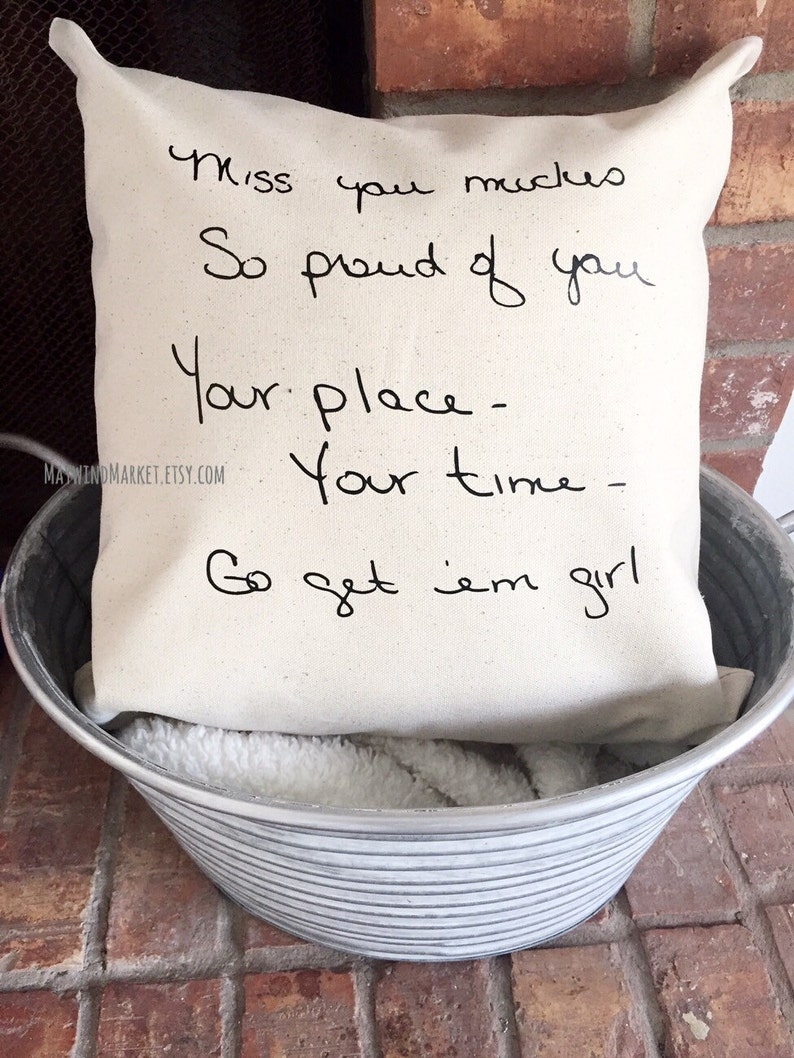 Miss you muches
So proud of you
Your place -
Your time -
Go get 'em girl
MaywindMarket.etsy.com